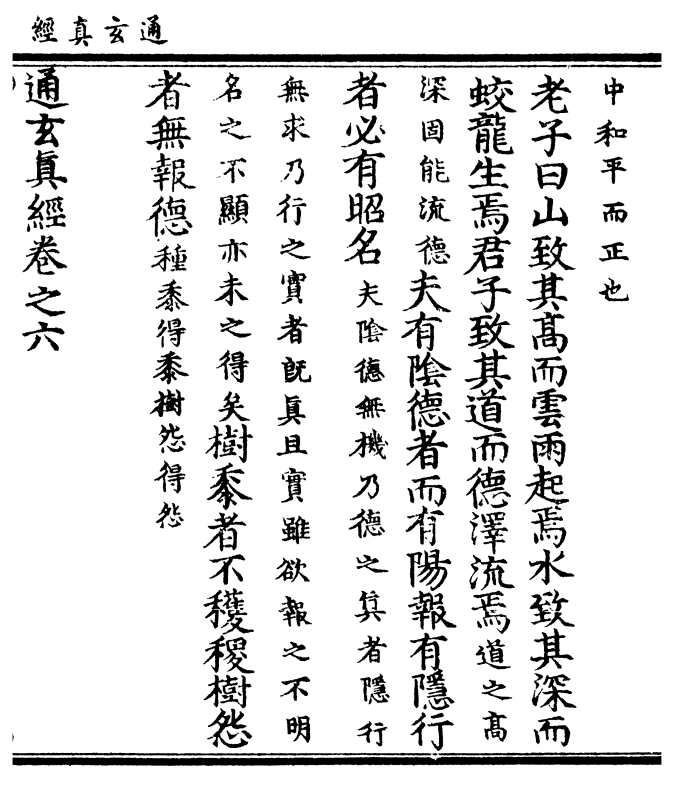 通玄真經
中和平而正也
老子曰山致其高而雲雨起焉水致其深而
蛟龍生焉君子致其道而德澤流焉道之高
深固能流德夫有陰德者而有陽報有隱行
者必有昭名夫陰德無機乃德之真者隱行
無求乃行之實者既真且實雖欲報之不明
名之不顯亦未之得矣樹黍者不穫稷樹怨
者無報德種黍得黍樹怨得怨
通玄真經卷之六